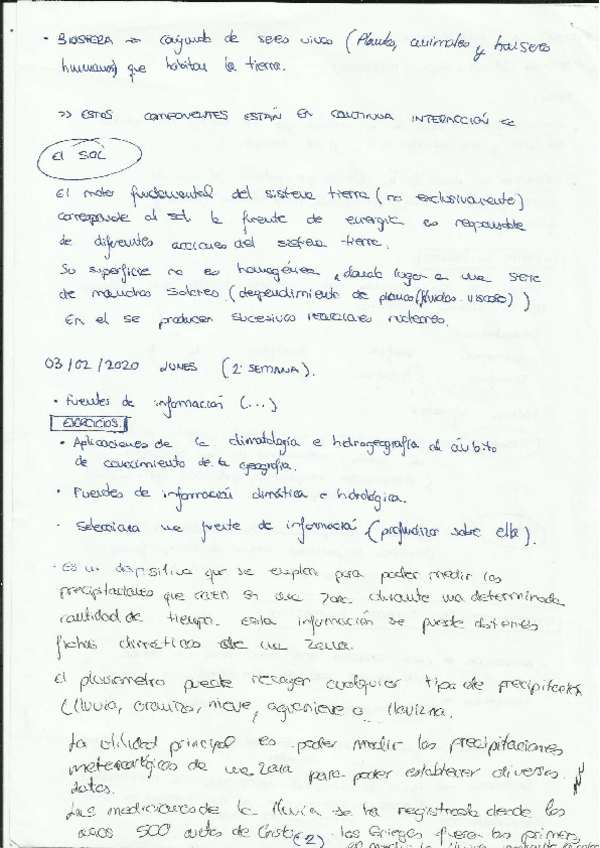 · BIOSFERA → conjunto de seres vivos (Plantas, animales y seres
humanos) que habitan la tierra.
>> ESTOS COMPONENTES ESTÁN EN CONTINUA INTERACCIÓN <<
El SOL
El motor fundamental del sistema tierra (no exclusivamente)
corresponde al sol. la fuente de energía es responsable
de diferentes acciones del sistema tierra.
Su superficie no es homogénea, dando lugar a una serie
de manchas solares. (dependimiento de (fluidos viscoso))
En el se producen sucesivas reacciones nucleares.
03/02/2020 LUNES (2ª SEMANA).
· Fuentes de información (...)
EJERCICIOS.
· Aplicaciones de la climatología e hidrogeografía al ámbito
de conocimiento de la geografía.
· Fuentes de información climática e hidrológica.
· Selecciona una fuente de información (profundizar sobre ella).
· Es un dispositivo que se emplea para poder medir las
precipitaciones que caen en una zona durante una determinada
cantidad de tiempo. esta información se puede
climáticos de una zona.
El pluviometro puede recoger cualquier tipo de precipitación
(lluvia, granizo, nieve, aguanieve o llovizna.
La utilidad principal es poder medir las precipitaciones
meteorológicas de una zona para poder establecer diversos
datos.
Las mediciones de la lluvia se ha registrado desde los
años 500 antes de Cristo (2). los Griegos fueron los primeros